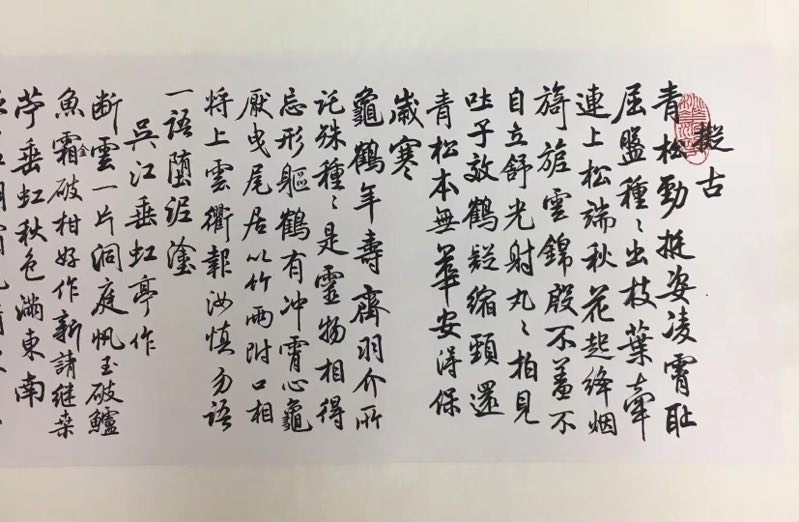 擬古
青松勁挺姿凌霄恥
屈盤種〻出枝葉牽
連上松端秋花起絳烟
旖旎雲錦殷不羞不
自立舒光射丸〻柏見
吐子效鶴疑縮頸還
青松本無華安得保
歲寒
龜鶴年壽齊羽介所
託殊種〻是靈物相得
忘形軀鶴有冲霄心龜
厭曳尾居以竹兩附口相
将上雲衢報汝慎勿語
一語堕泥塗
吳江垂虹亭作
断雲一片洞庭帆玉破鱸
魚霜金破柑好作新詩继桑
苧垂虹秋色滿東南